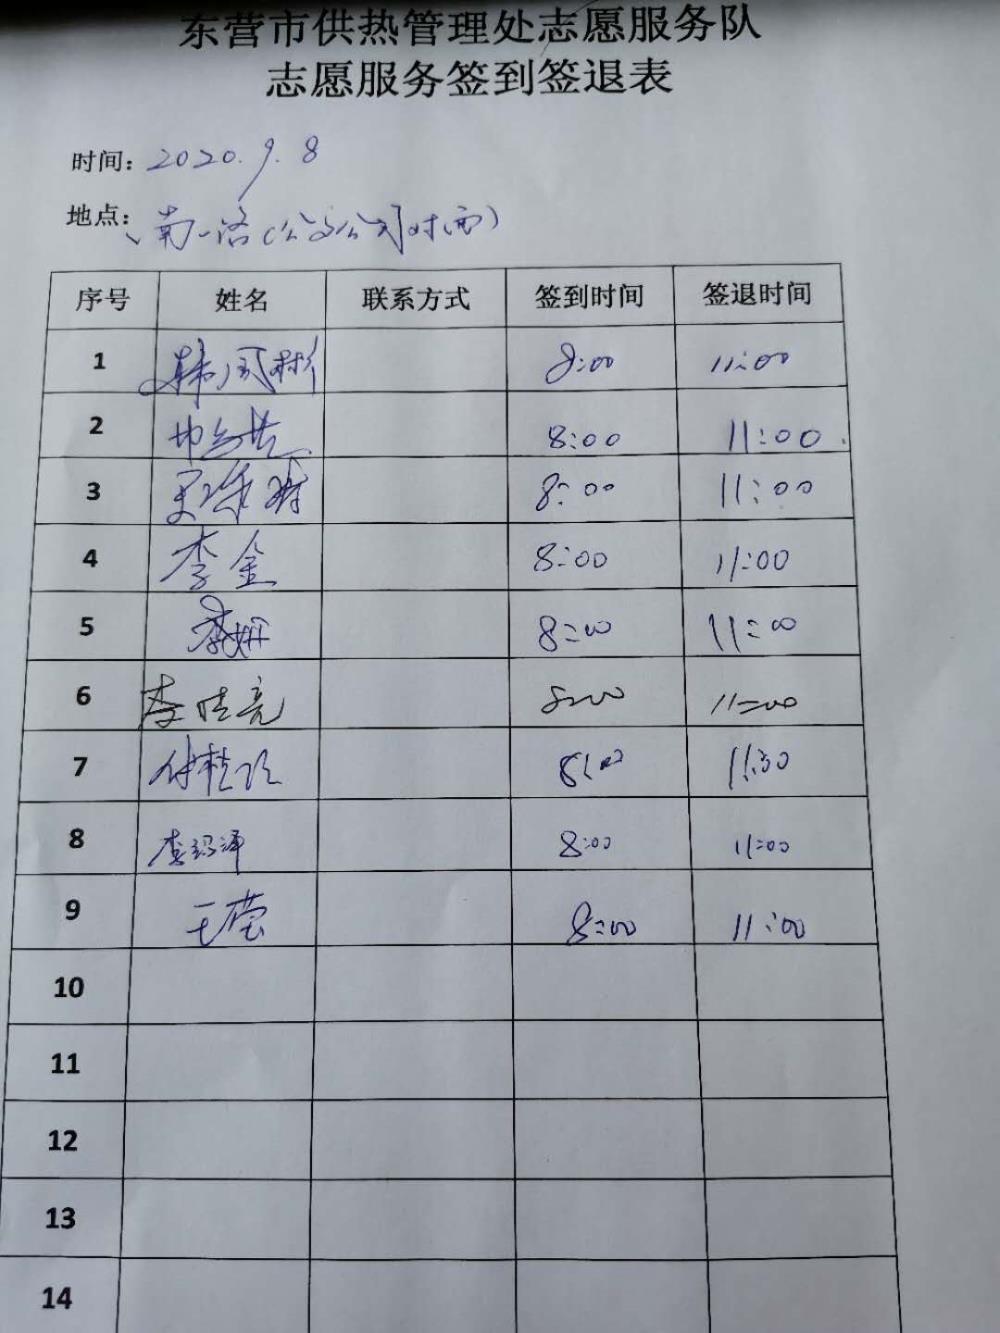 东营市供热管理处志愿服务队
志愿服务签到签退表
时间: 2020.9.8
地点: 南一路(公交公司对面)
序号 姓名 联系方式 签到时间 签退时间
1 8:00 11:00
2 8:00 11:00
3 8:00 11:00
4 李金 8:00 11:00
5 李妍 8:00 11:00
6 李 亮 8:00 11:00
7 8:00 11:30
8 李 8:00 11:00
9 王莹 8:00 11:00
10
11
12
13
14